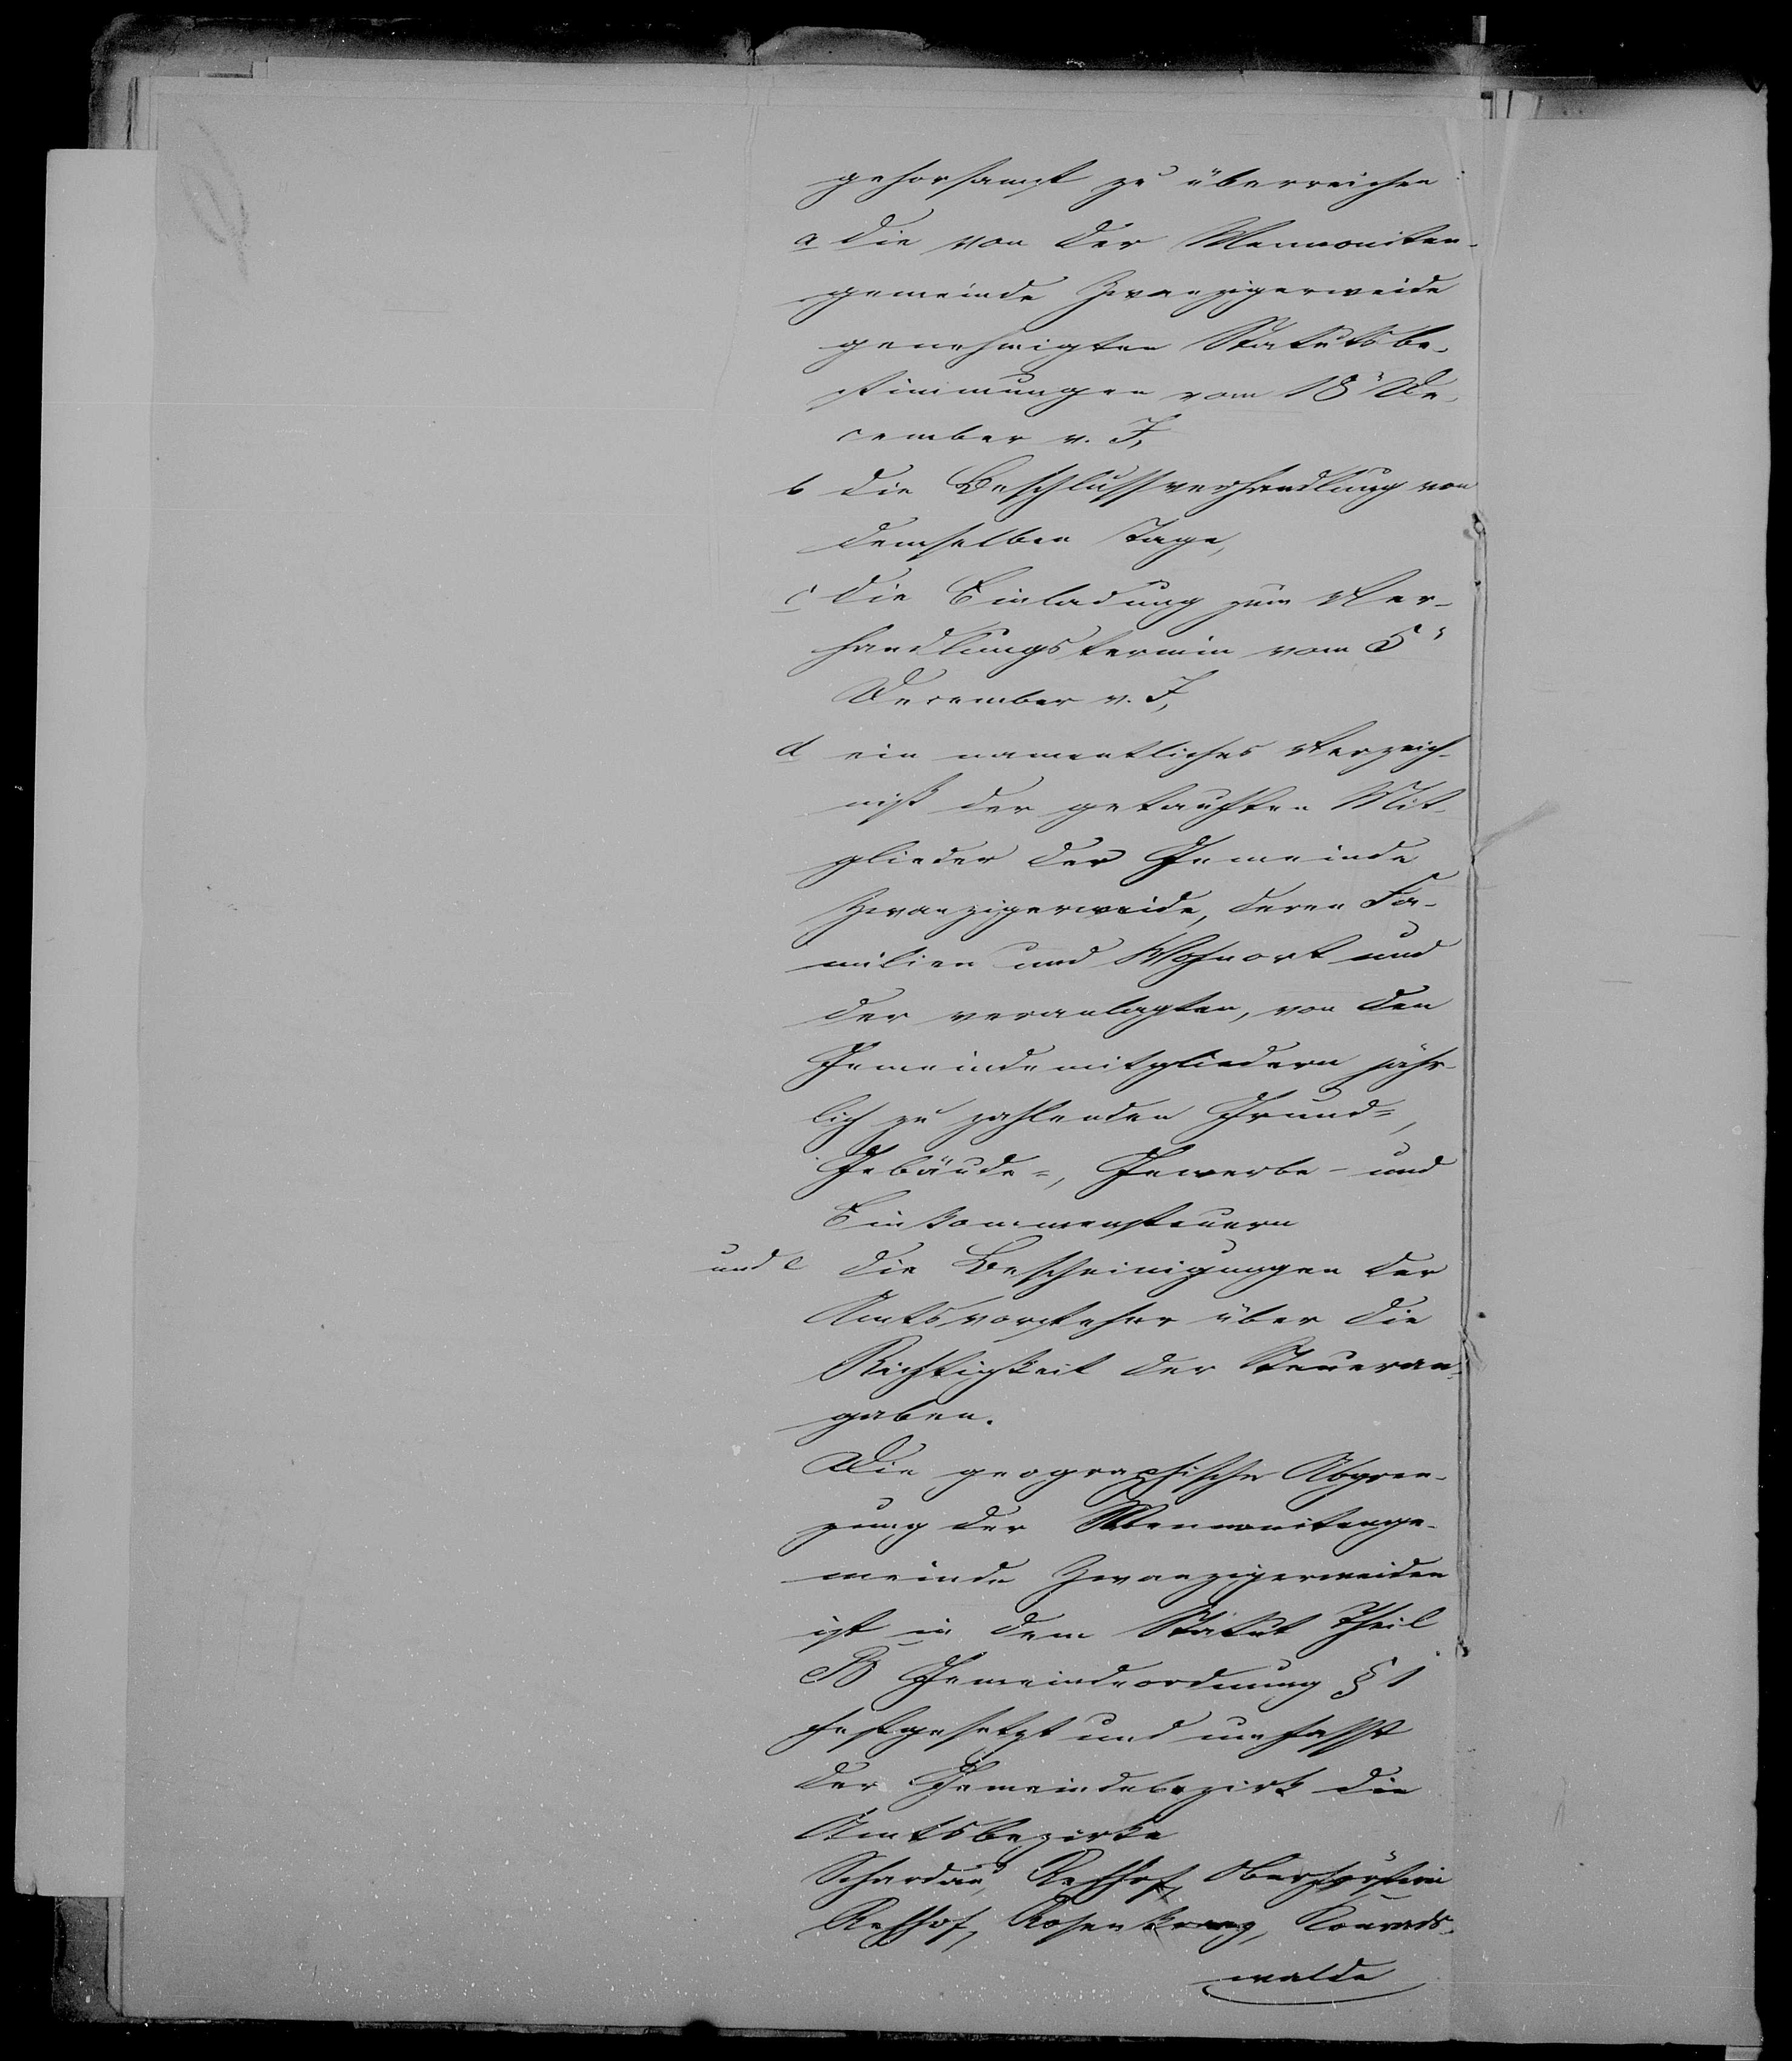 gehorsamst zu überreichen
a die von der Mennoniten-
gemeinde Zwanzigerweide
genehmigten Statutsbe-
stimmungen vom 18" De-
cember v. J,
b die Beschlussverhandlung von
demselben Tage,
c die Einladung zum Ver-
handlungstermin vom 5"
December v. J,
d ein namentliches Verzeich-
niß der getauften Mit-
glieder der Gemeinde
Zwanzigerweide, deren Fa-
milien und Wohnort und
der veranlagten, von den
Gemeindemitgliedern jähr-
lich zu zahlenden Grund=,
Gebäude=, Gewerbe- und
Einkommensteuern
und e die Bescheinigungen der
Amtsvorsteher über die
Richtigkeit der Steueran-
gaben.
Die geographische Abgren-
zung der Mennonitenge-
meinde Zwanzigerweiden
ist in dem Statut Theil
B Gemeindeordnung § 1
festgesetzt und umfasst
der Gemeindebezirk die
Amtsbezirke
Schardau, Rehhof, Oberförsterei
Rehhof, Rosenkranz, Konrads-
walde